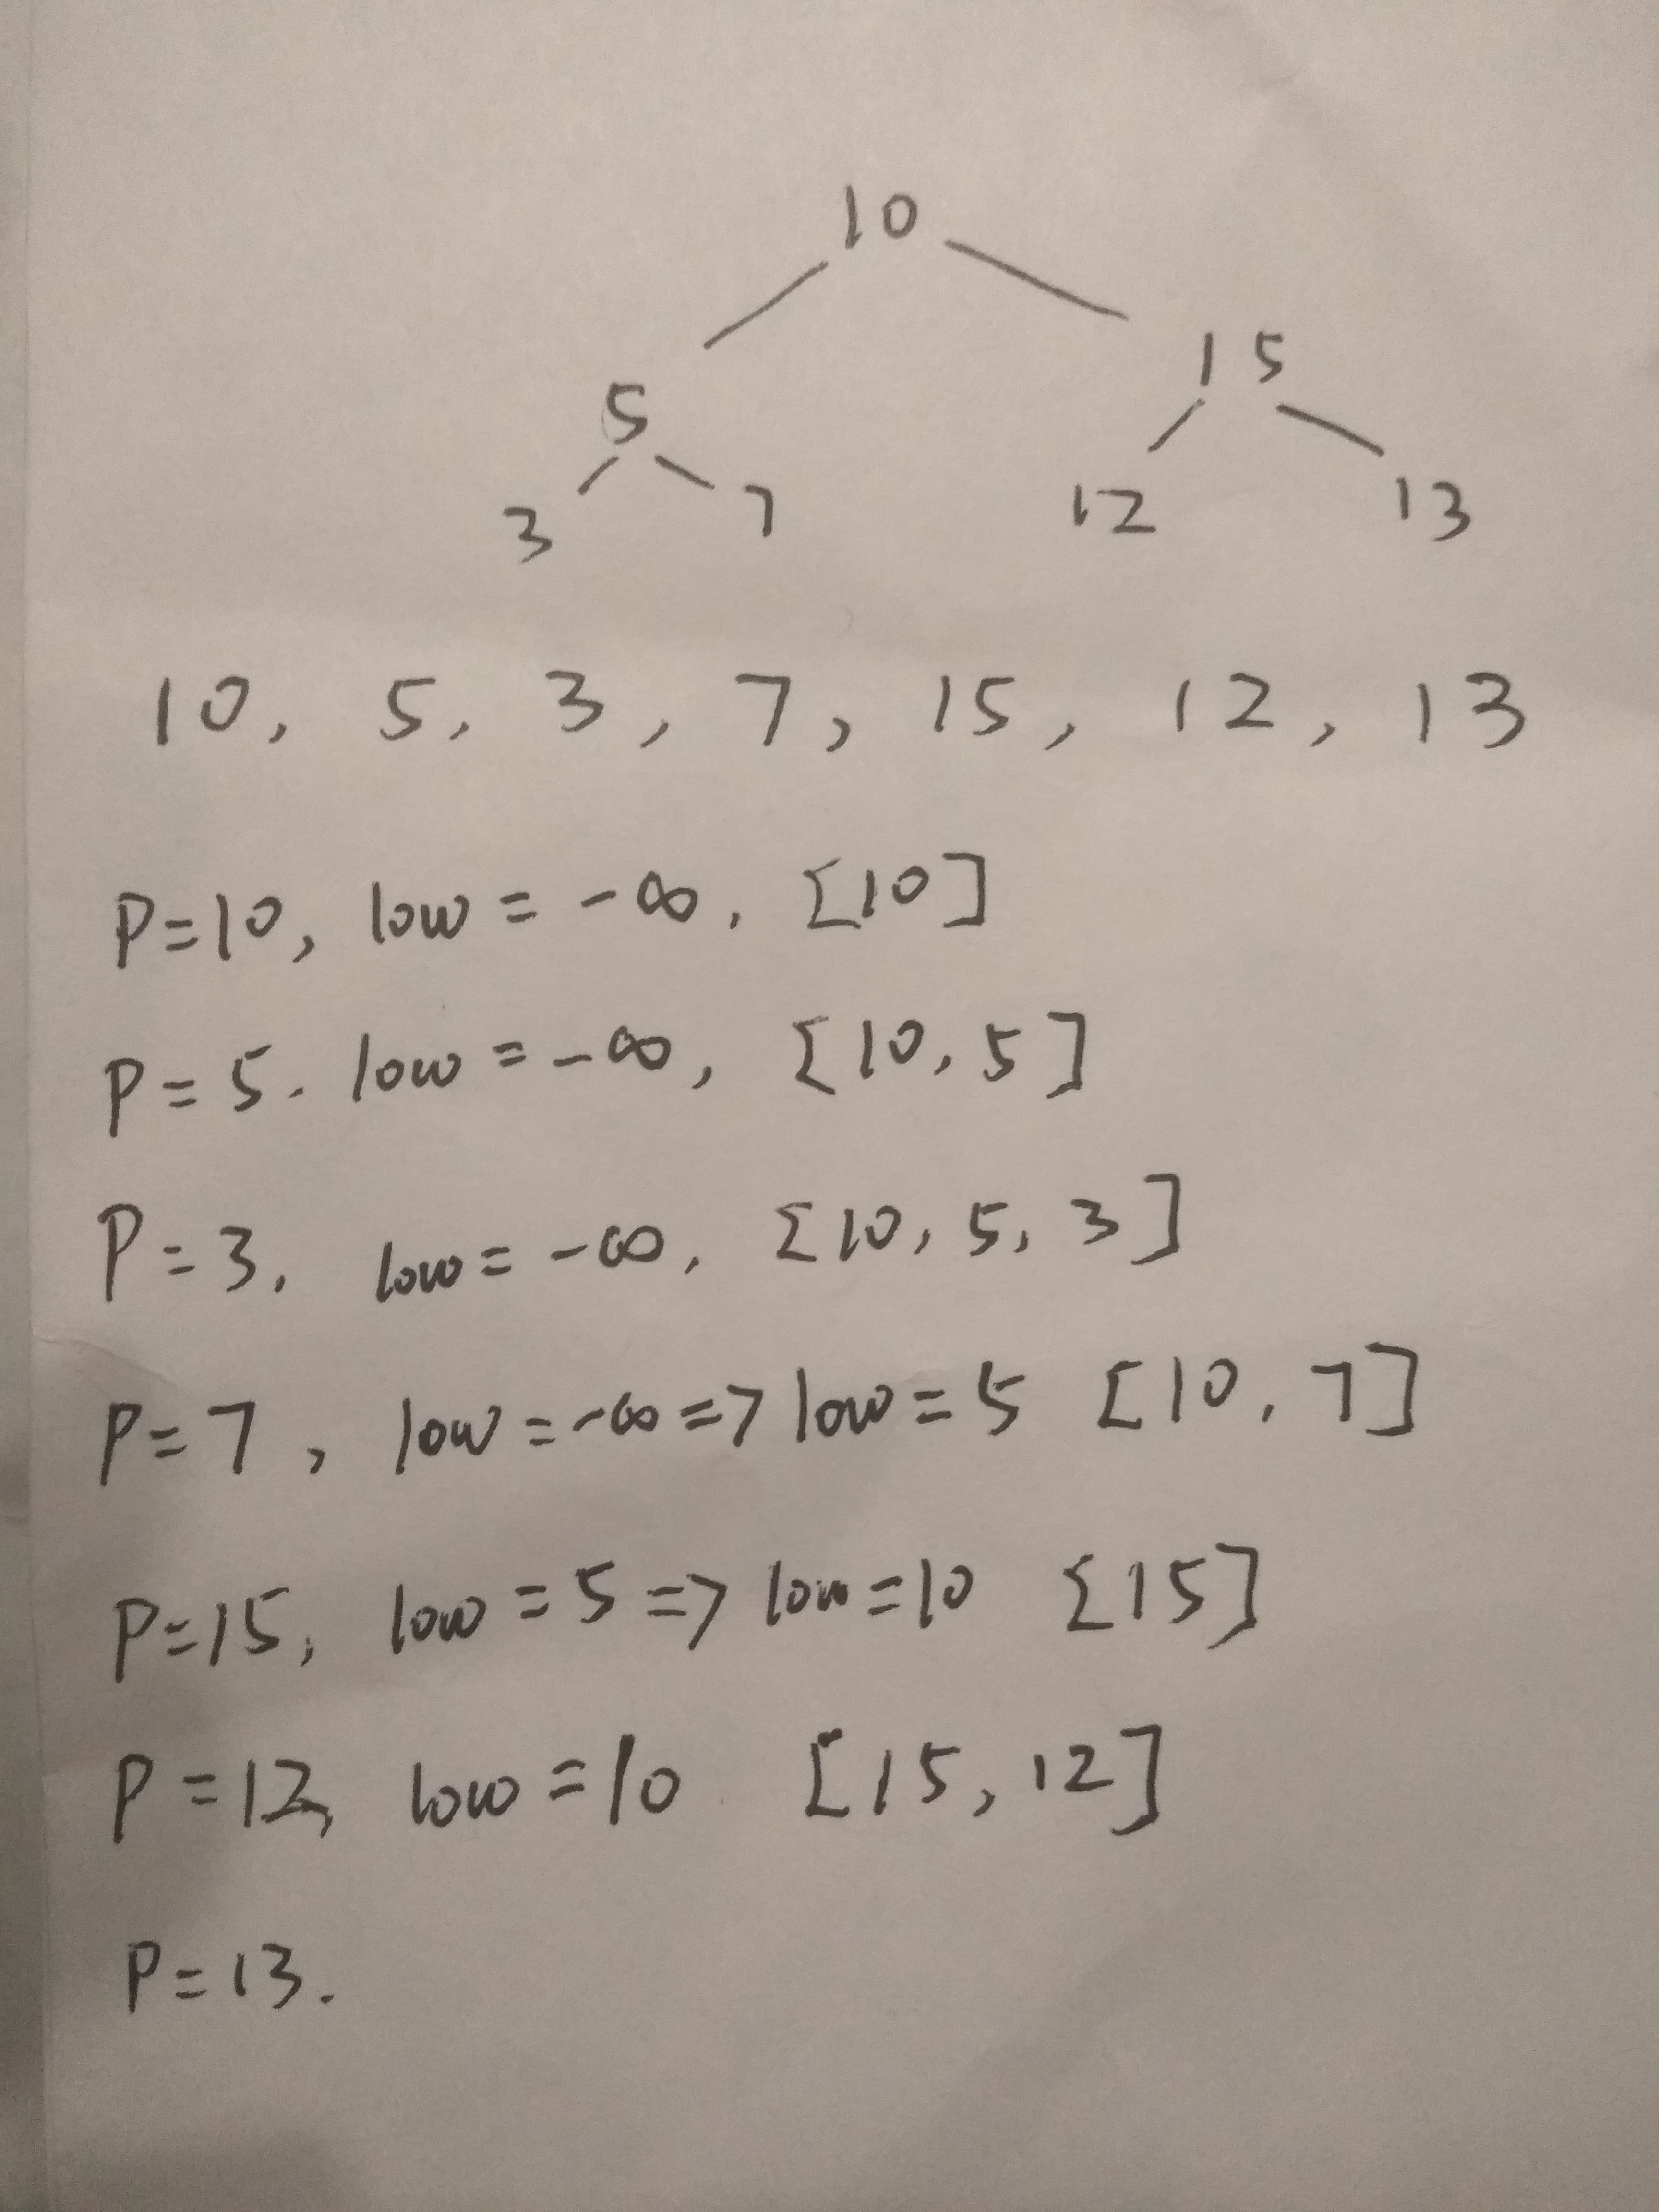 10
15
5
3 7 12 13
10, 5, 3, 7, 15, 12, 13
P=10, low = -∞, [10]
P=5. low = -∞, [10, 5]
P=3, low = -∞, [10, 5, 3]
P=7, low = -∞ => low = 5 [10, 7]
P=15, low = 5 => low = 10 [15]
P=12, low = 10 [15, 12]
P=13.